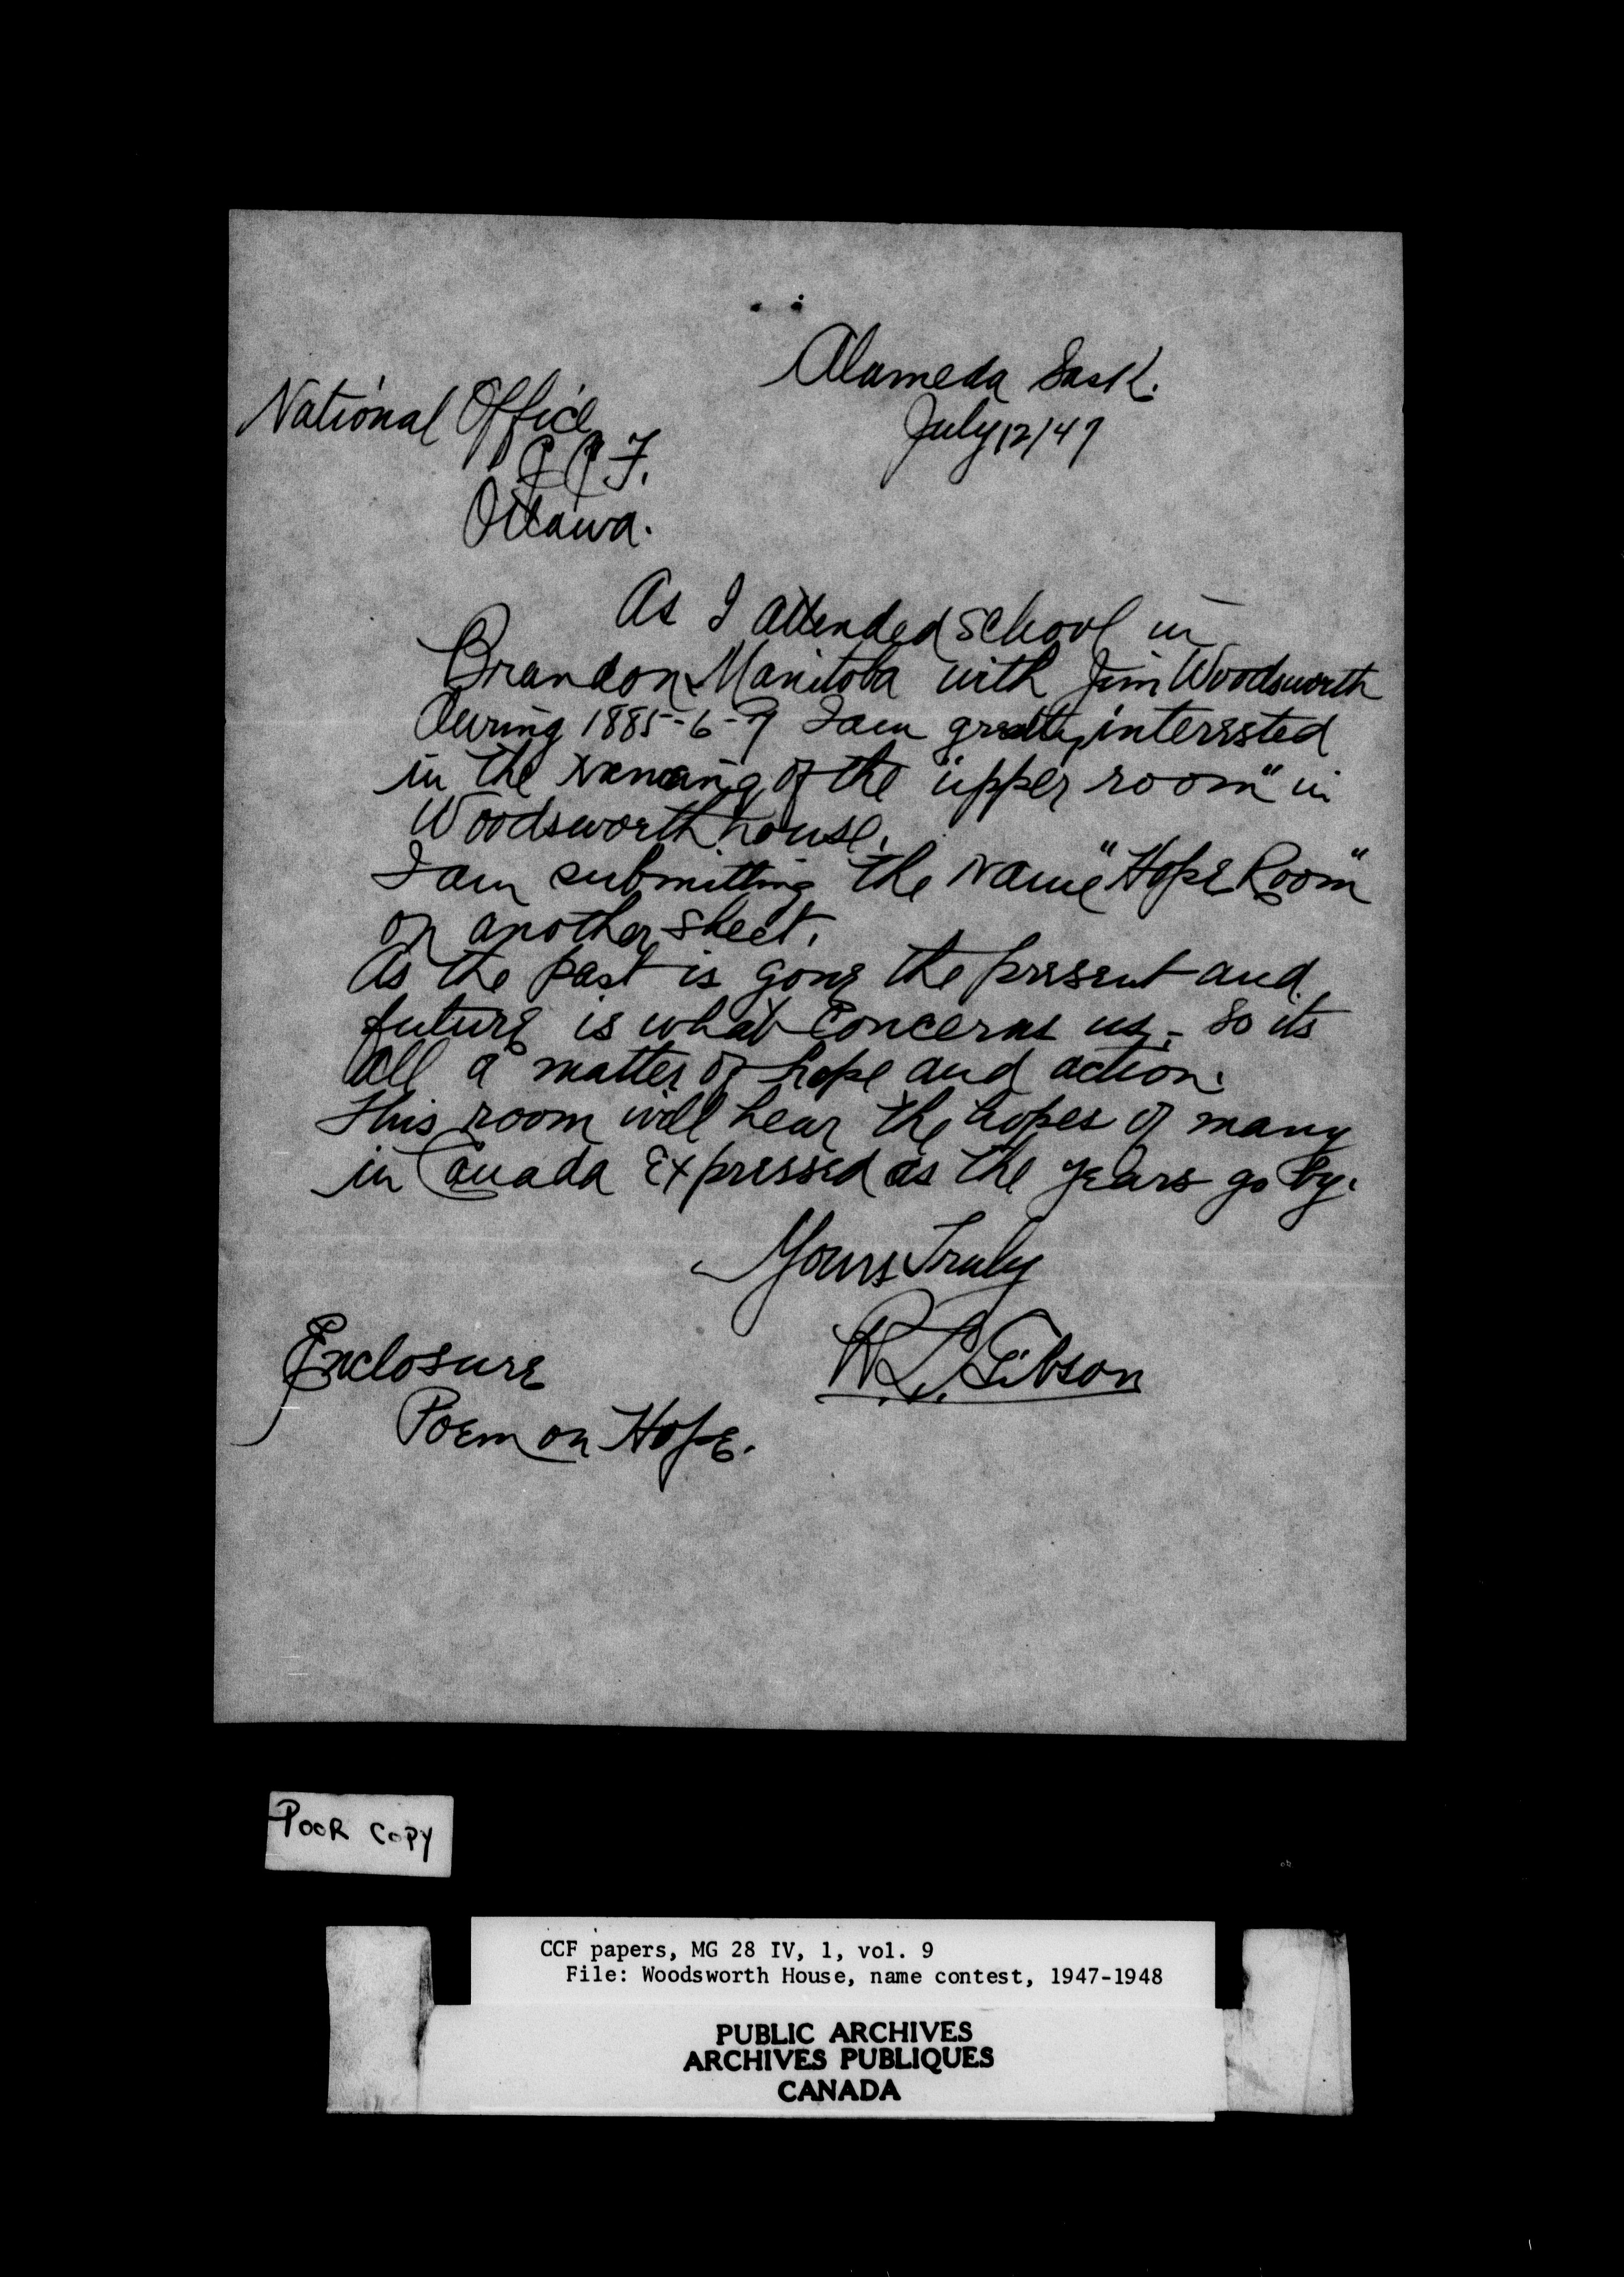 Alameda Sask.
July 12/47
National Office
C C F.
Ottawa.
As I attended school in
Brandon Manitoba with Jim Woodsworth
during 1885-6-7 I am greatly interested
in the naming of the "upper room" in
Woodsworth house.
I am submitting the name "Hope Room"
on another sheet.
As the past is gone the present and
future is what concerns us, so its
all a matter of hope and action.
This room will hear the hopes of many
in Canada expressed as the years go by.
Yours Truly
R. L. Gibson
Enclosure
Poem on Hope.
POOR COPY
CCF papers, MG 28 IV, 1, vol. 9
File: Woodsworth House, name contest, 1947-1948
PUBLIC ARCHIVES
ARCHIVES PUBLIQUES
CANADA